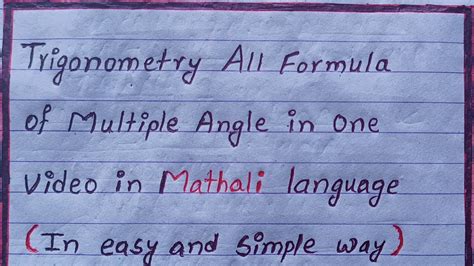 Trigonometry All Formula
of Multiple Angle in One
Video in Mathali language
(In easy and simple way)